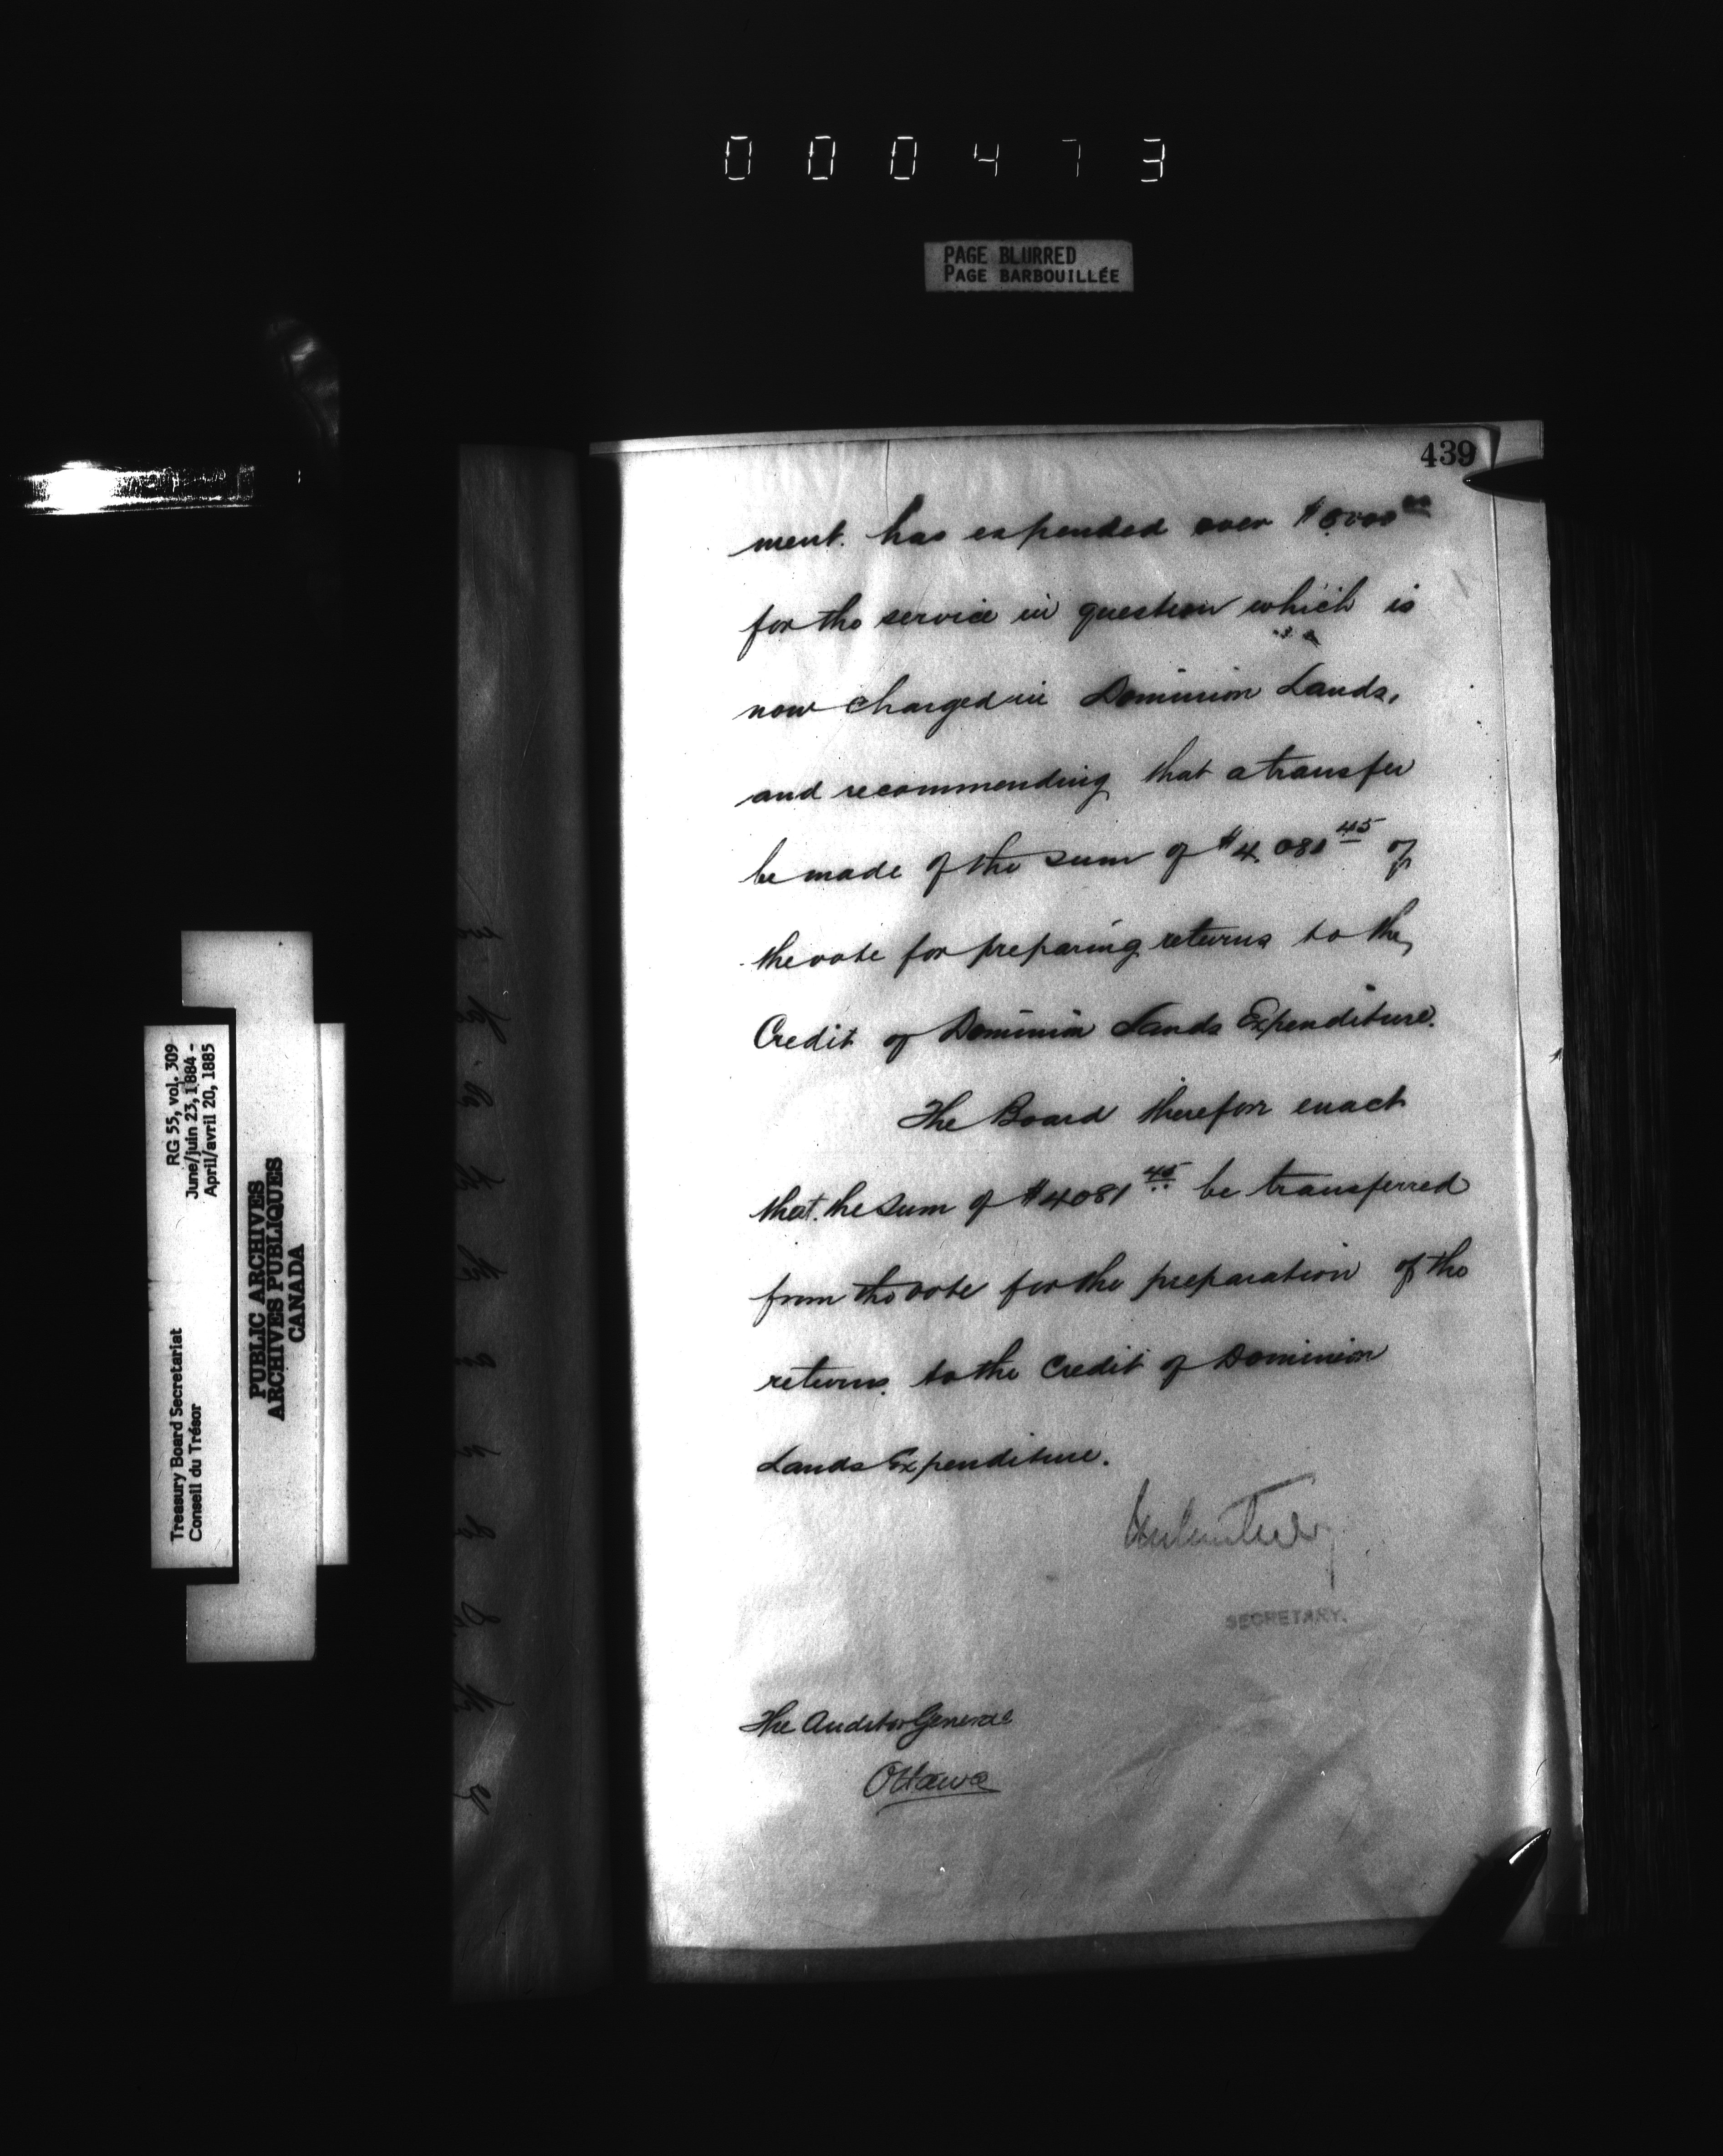 000473
PAGE BLURRED
PAGE BARBOUILLÉE
439
ment. has expended over
for the service in question which is
now charged in Dominion Lands,
and recommending that a transfer
be made of the sum of $4,081 45 of
the vote for preparing returns to the
Credit of Dominion Lands Expenditure.
The Board therefore enact
that the sum of $4081 45 be transferred
from the vote for the preparation of the
returns to the Credit of Dominion
Lands Expenditure.
SECRETARY.
The Auditor General
Ottawa
RG 55, vol. 309
June/juin 23, 1884 -
April/avril 20, 1885
Treasury Board Secretariat
Conseil du Trésor
PUBLIC ARCHIVES
ARCHIVES PUBLIQUES
CANADA